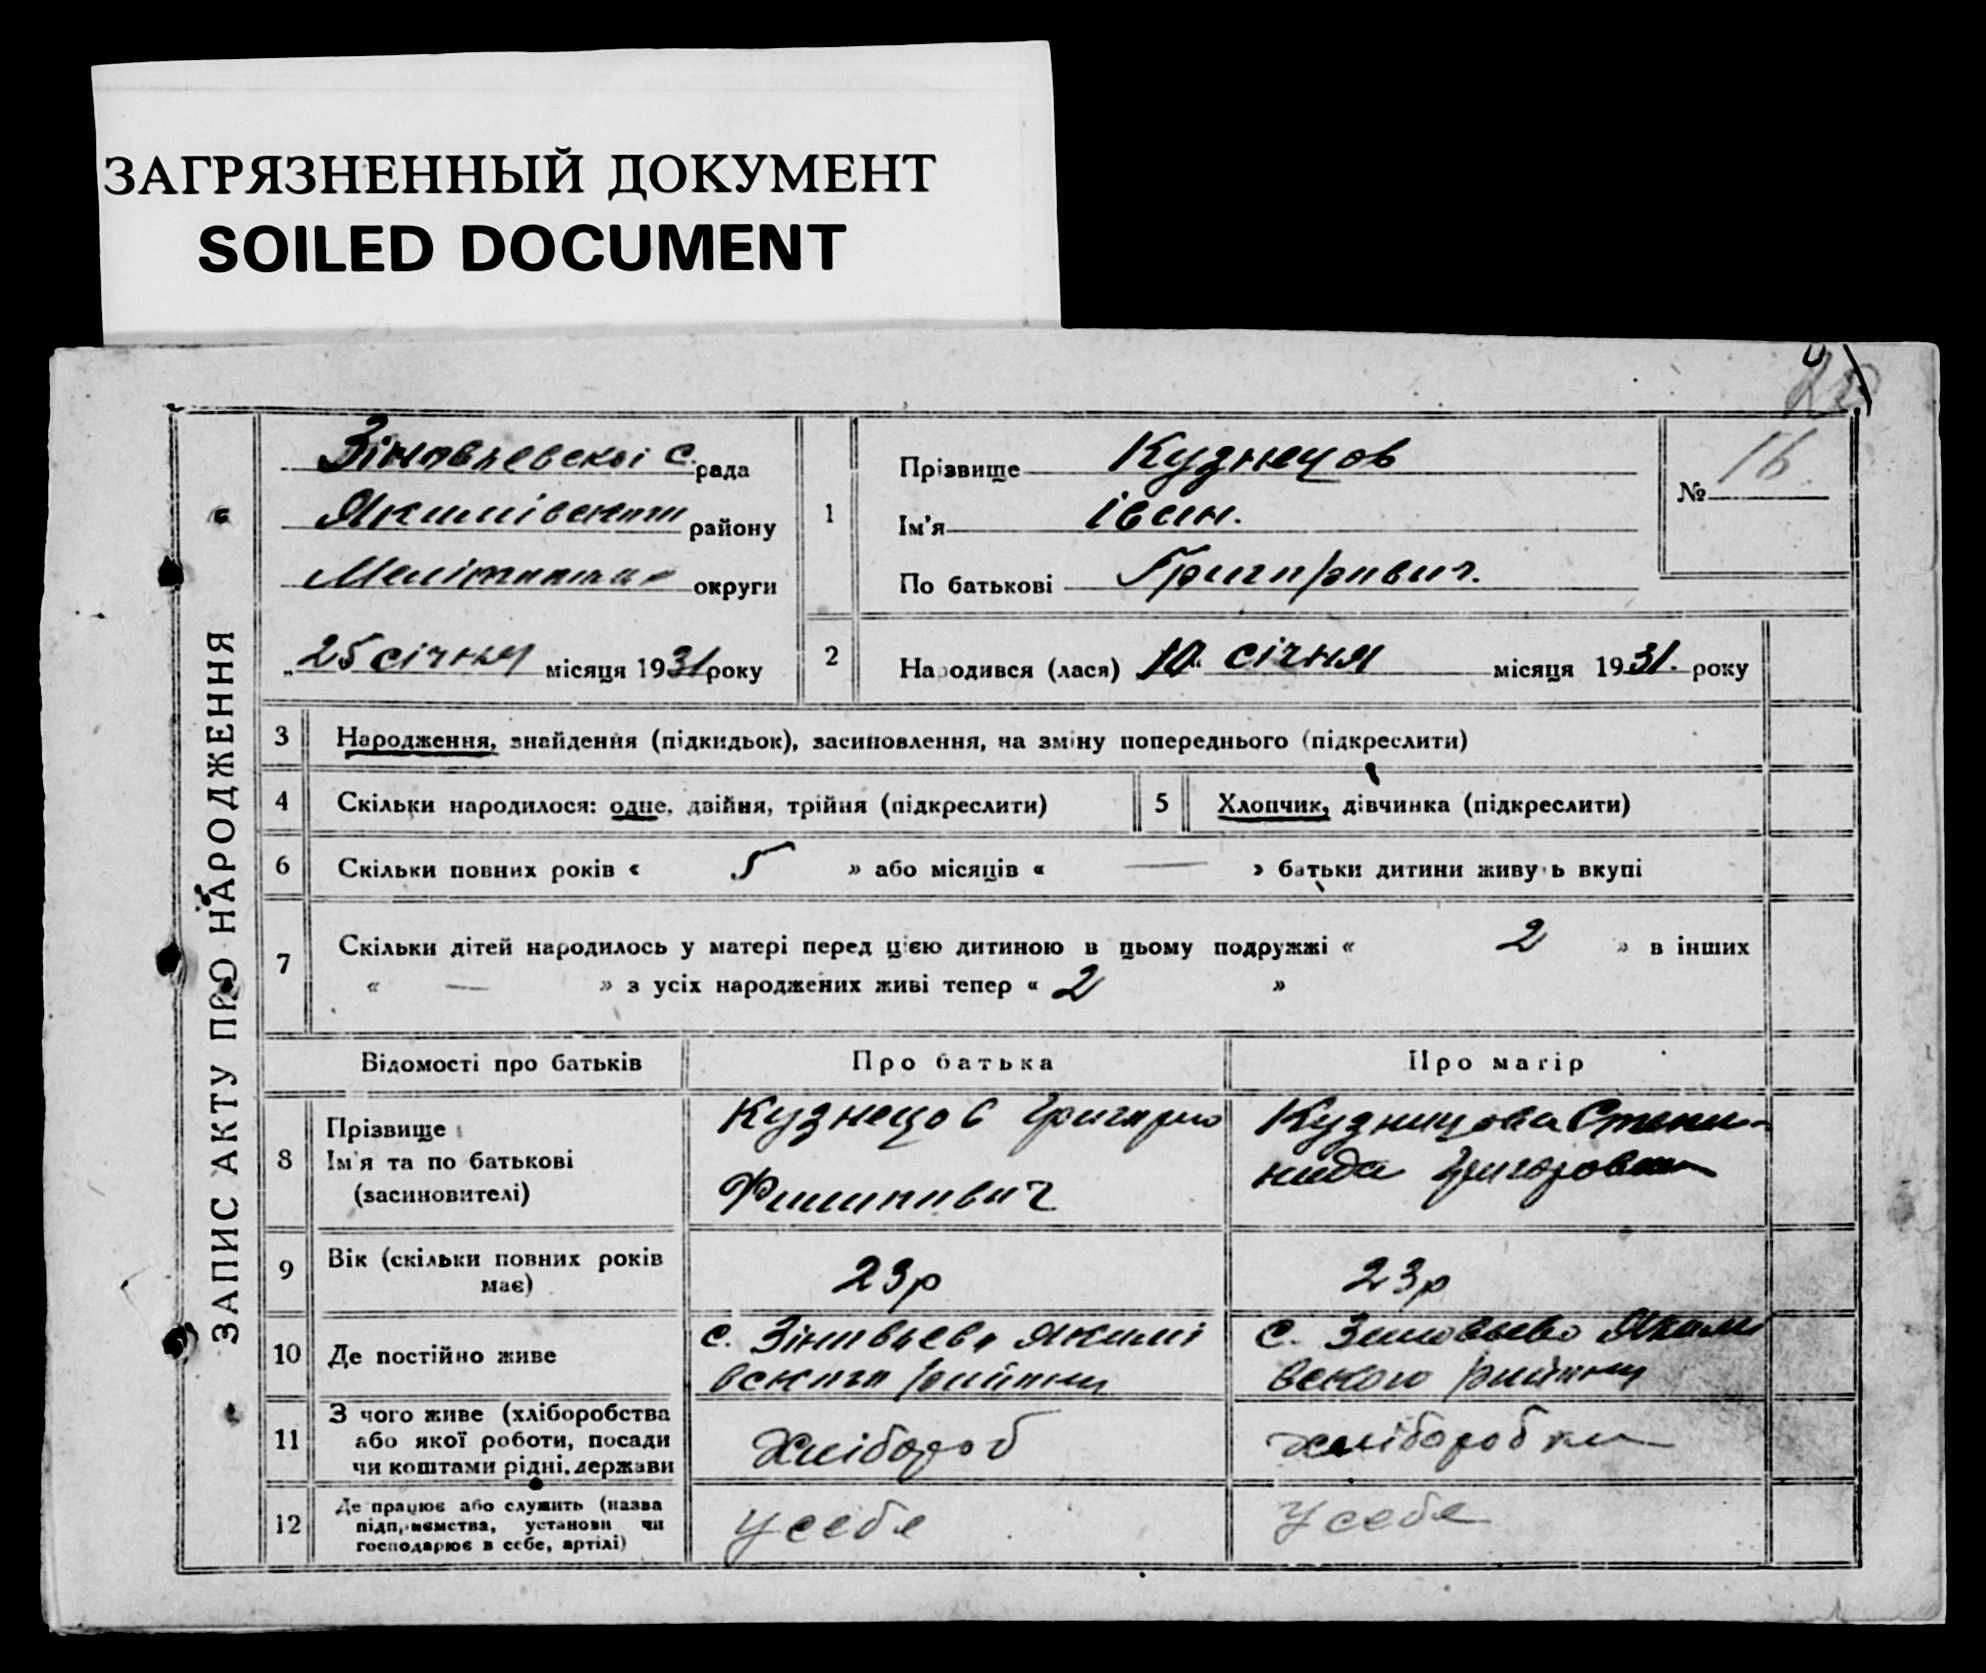 ЗАГРЯЗНЕННЫЙ ДОКУМЕНТ
SOILED DOCUMENT
ЗАПИС АКТУ ПРО НАРОДЖЕННЯ
Зіновьевскої с. рада
Якимівського району
округи
„25 січня місяця 1931 року
1
Прізвище Кузнецов
Ім'я Іван.
По батькові Григорович.
№ 16
2
Народився (лася) 10 січня місяця 1931. року
3 Народження, знайдення (підкидьок), засиновлення, на зміну попереднього (підкреслити)
4 Скільки народилося: одне, двійня, трійня (підкреслити)
5 Хлопчик, дівчинка (підкреслити)
6 Скільки повних років « 5 » або місяців « — » батьки дитини живуть вкупі
7 Скільки дітей народилось у матері перед цією дитиною в цьому подружжі « 2 » в інших
« — » з усіх народжених живі тепер « 2 »
Відомості про батьків Про батька Про матір
8 Прізвище
Ім'я та по батькові
(засиновителі)
Кузнецов Григорій
Кузницова Степа-
нида Григоровна
9 Вік (скільки повних років
має)
23р
23р
10 Де постійно живе
с. Зіновьево Якимі
вского району
с. Зиновьево Якими
вского району
11 З чого живе (хліборобства
або якої роботи, посади
чи коштами рідні, держави
Хлібороб
хліборобка
12 Де працює або служить (назва
підприємства, установи чи
господарює в себе, артілі)
У себе
У себе